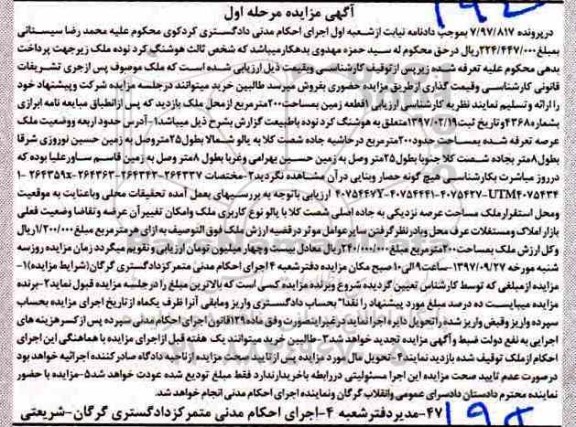 آگهی مزایده مرحله اول
درپرونده ۷/۹۷/۸۱۷ بموجب دادنامه نیابت ازشعبه اول اجرای احکام مدنی دادگستری کردکوی محکوم علیه محمد رضا سیستانی
بمبلغ ۲۲۴/۴۴۷/۰۰۰ریال درحق محکوم له سید حمزه مهدوی بدهکارمیباشد که شخص ثالث هوشنگ کرد نوده ملک زیرجهت پرداخت
بدهی محکوم علیه تعرفه شده زیرپس ازتوقیف کارشناسی وقیمت ذیل ارزیابی شده است که ملک موصوف پس ازجری تشریفات
قانونی کارشناسی و قیمت گذاری ازطریق مزایده حضوری بفروش میرسد طالبین خرید میتوانند درجلسه مزایده شرکت وپیشنهاد خود
را ارائه و تسلیم نمایند نظریه کارشناسی ارزیابی ۱قطعه زمین بمساحت۲۰۰مترمربع ازمحل ملک بازدید که پس ازانطباق مبایعه نامه ابرازی
بشماره۴۳۶۸وتاریخ ثبت۱۳۹۷/۰۲/۱۹متعلق به هوشنگ کرد نوده باطبیعت گزارش بشرح ذیل میباشد۱-آدرس حدود اربعه ووضعیت ملک
عرصه تعرفه شده بمساحت حدود۲۰۰مترمربع درحاشیه جاده شصت کلا به یالو شمالا بطول۲۵متروصل به زمین حسین نوروزی شرقا
بطول۸متر بجاده شصت کلا جنوبا بطول۲۵متر وصل به زمین حسین بهرامی وغربا بطول۸متر وصل به زمین قاسم ساورعلیا بوده که
درروز مباشرت بکارشناسی هیچ گونه حصار وبنایی درآن مشاهده نگردید۲-مختصات ۲۶۴۳۳۷-۲۶۴۳۴۲-۲۶۴۳۶۳-۲۶۴۳۵۹x -۱
UTM۴۰۷۵۴۳۴-۴۰۷۵۴۲۷-۴۰۷۵۴۴۱-۴۰۷۵۴۴۷Y ارزیابی باتوجه به بررسیهای بعمل آمده تحقیقات محلی وباعنایت به موقعیت
ومحل استقرارملک مساحت عرصه نزدیکی به جاده اصلی شصت کلا یا یالو نوع کاربری ملک وامکان تغییرآن عرضه وتقاضا وضعیت فعلی
بازار املاک ومستغلات عرف محل وبادرنظر گرفتن سایرعوامل موثر درقضیه ارزش ملک فوق التوصیف به ازای هرمترمربع مبلغ ۱/۲۰۰/۰۰۰ریال
وکل ارزش ملک بمساحت۲۰۰مترمربع مبلغ ۲۴۰/۰۰۰/۰۰۰ریال معادل بیست وچهار میلیون تومان ارزیابی وتقویم میگردد زمان مزایده روزسه
شنبه مورخه ۱۳۹۷/۰۹/۲۷-ساعت۹الی۱۰صبح مکان مزایده دفترشعبه ۴اجرای احکام مدنی متمرکزدادگستری گرگان(شرایط مزایده)۱-
مزایده ازمبلغی که توسط کارشناس تعیین گردیده شروع وبرنده مزایده کسی است که بالاترین مبلغ را درجلسه مزایده قبول نماید۲-برنده
مزایده میبایست ده درصد مبلغ مورد پیشنهاد را نقدا" بحساب دادگستری واریز ومابقی آنرا ظرف یکماه از تاریخ اجرای مزایده بحساب
سپرده واریز وقبض واریز شده راتحویل دایره اجرا نماید درغیراینصورت وفق ماده۱۲۹قانون اجرای احکام مدنی سپرده پس از کسرهزینه های
اجرایی به نفع دولت ضبط وآگهی مزایده تجدید خواهد شد۳-طالبین خرید میتوانند یک هفته قبل ازاجرای مزایده با هماهنگی این اجرای
احکام ازملک توقیف شده بازدید نمایند۴-تحویل مال مورد مزایده پس از تایید صحت مزایده ازناحیه دادگاه صادرکننده اجرائیه خواهد بود
درصورت عدم تایید صحت مزایده این اجرا مسئولیتی دررابطه باخریدارندارد فقط مبلغ تودیع شده عودت خواهد شد۵-مزایده با حضور
نماینده محترم دادستان دادسرای عمومی وانقلاب گرگان ونماینده اجرای احکام مدنی انجام خواهد شد.
۴۷-مدیردفترشعبه ۴-اجرای احکام مدنی متمرکزدادگستری گرگان-شریعتی